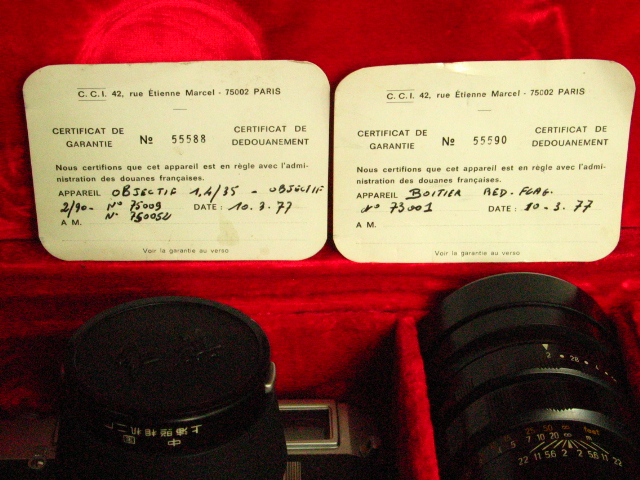 C.C.I. 42, rue Étienne Marcel - 75002 PARIS
CERTIFICAT DE GARANTIE
№ 55588
CERTIFICAT DE DEDOUANEMENT
Nous certifions que cet appareil est en règle avec l'admi-
nistration des douanes françaises.
APPAREIL OBJECTIF 1,4/35 - OBJECTIF
2/90 - N° 75009 DATE : 10.3.77
A M. N° 750052
Voir la garantie au verso
C.C.I. 42, rue Étienne Marcel - 75002 PARIS
CERTIFICAT DE GARANTIE
№ 55590
CERTIFICAT DE DEDOUANEMENT
Nous certifions que cet appareil est en règle avec l'admi-
nistration des douanes françaises.
APPAREIL BOITIER RED. FLAG.
N° 73001 DATE : 10 - 3. 77
A M.
Voir la garantie au verso
中国上海照相机二厂
2 • 28
25 50 ∞ feet
5 7 10 20 ∞ m
22 11 5.6 2 2 5.6 11 22